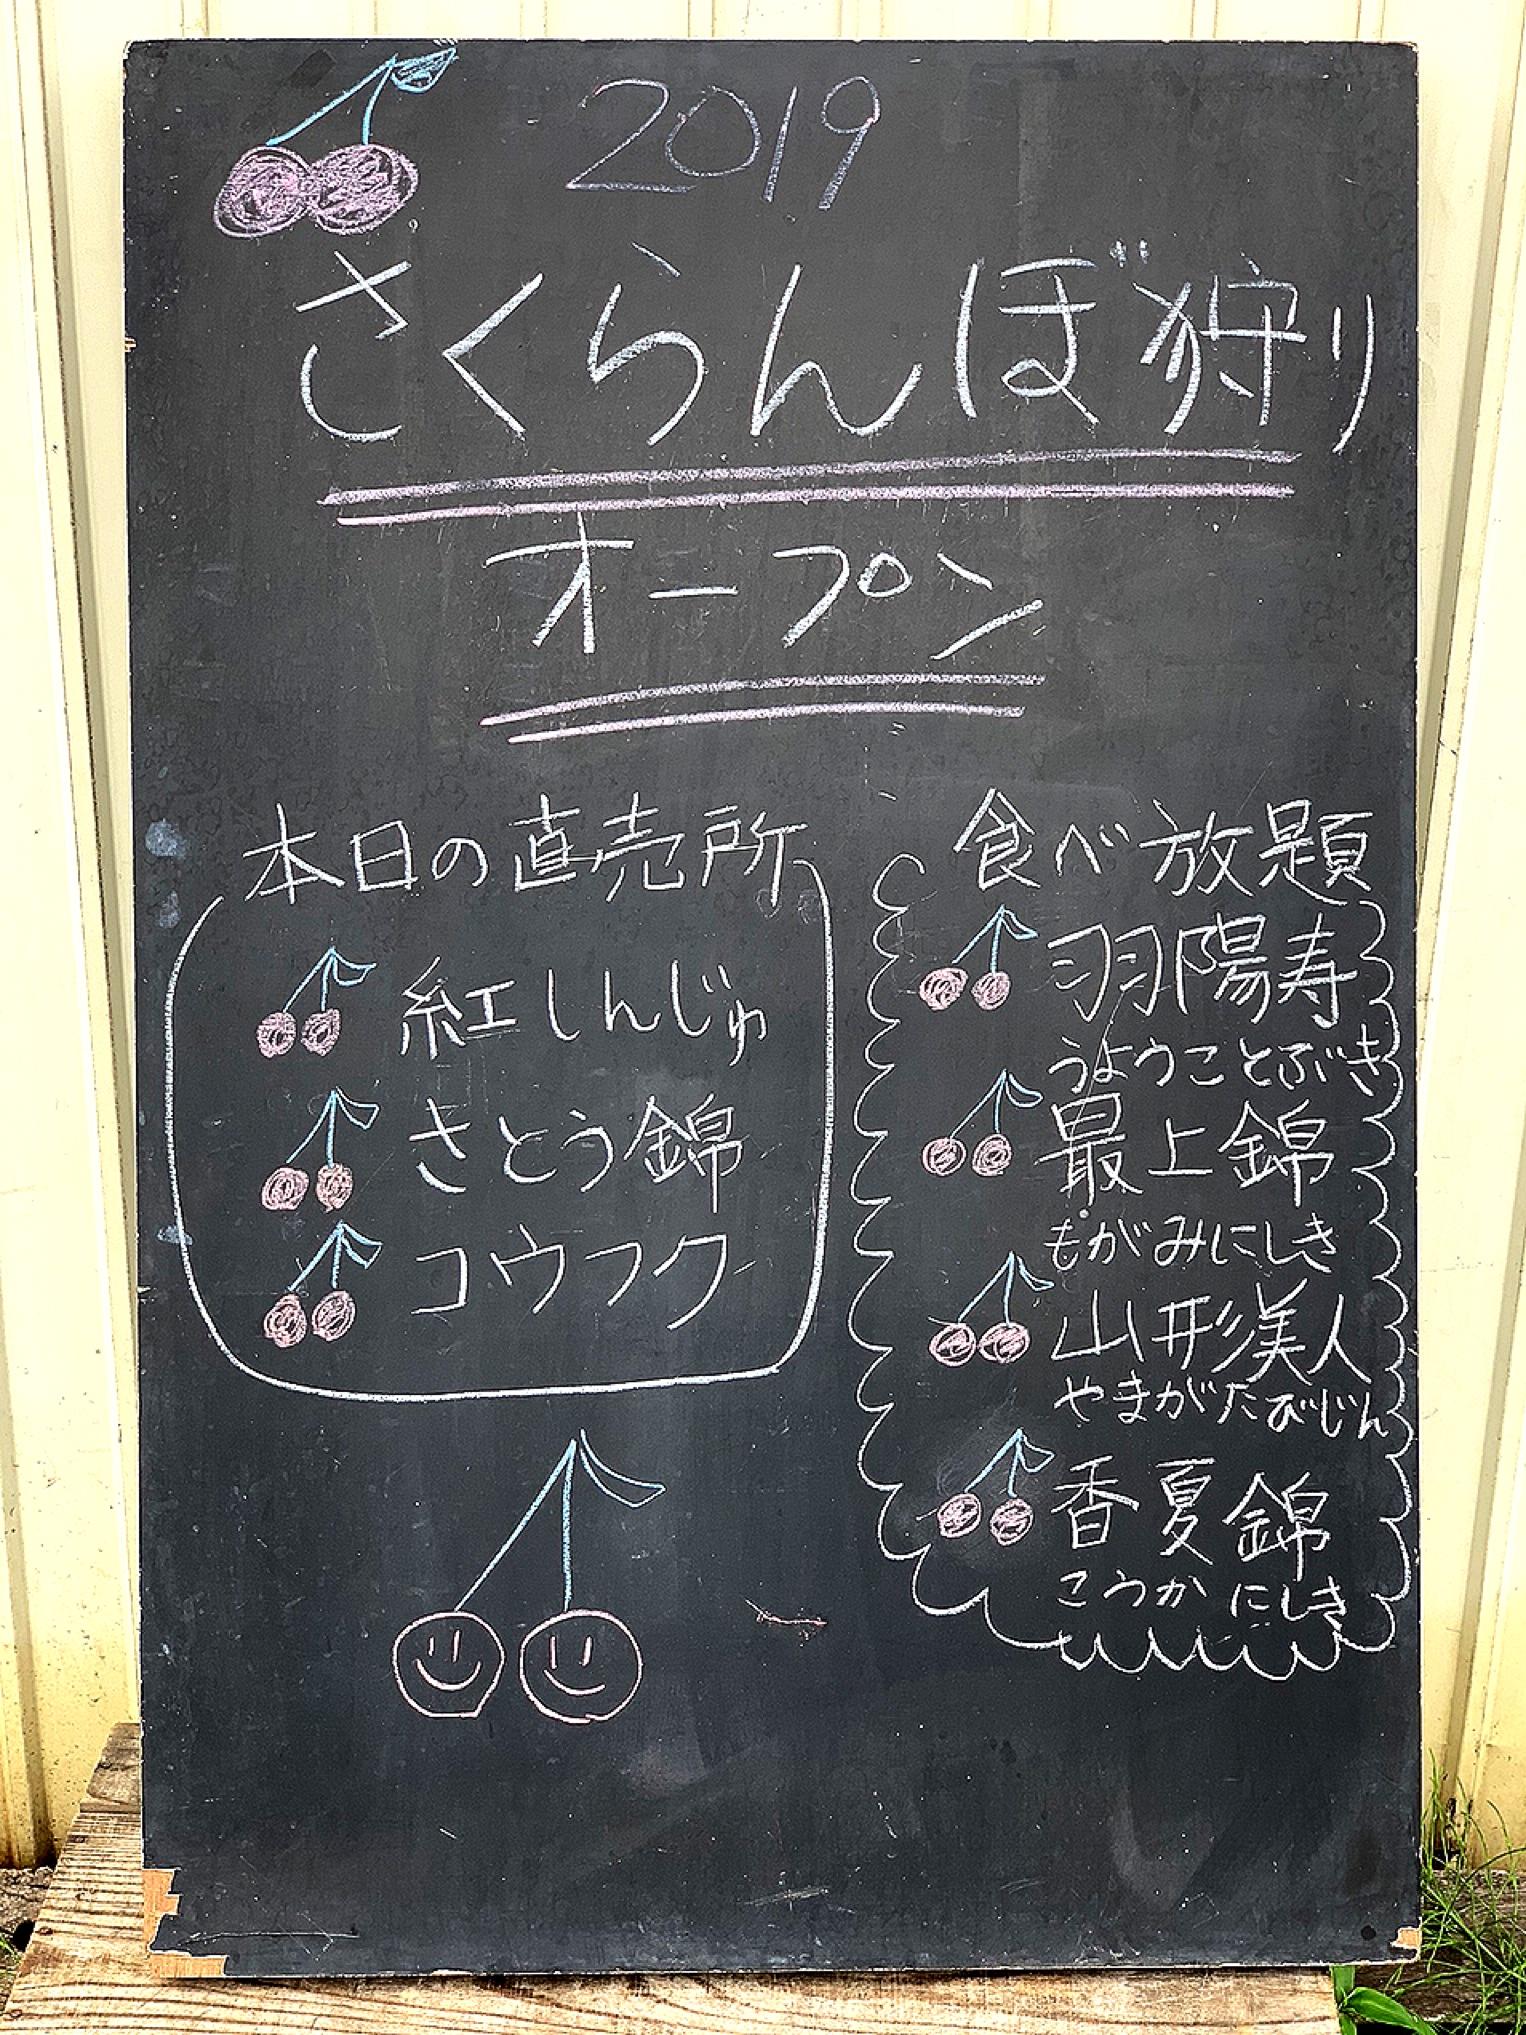 2019
さくらんぼ狩り
オープン
本日の直売所
紅しんじゅ
さとう錦
コウフク
食べ放題
羽陽寿
うようことぶき
最上錦
もがみにしき
山形美人
やまがたびじん
香夏錦
こうかにしき